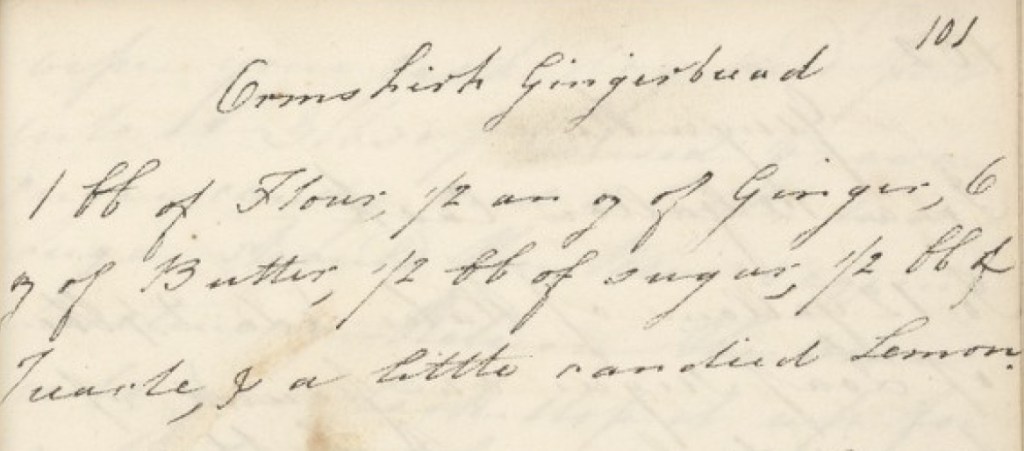 101
Ormskirk Gingerbread
1 lb of Flour, 1/2 an oz of Ginger, 6
oz of Butter, 1/2 lb of sugar, 1/2 lb of
Treacle, & a little candied Lemon.